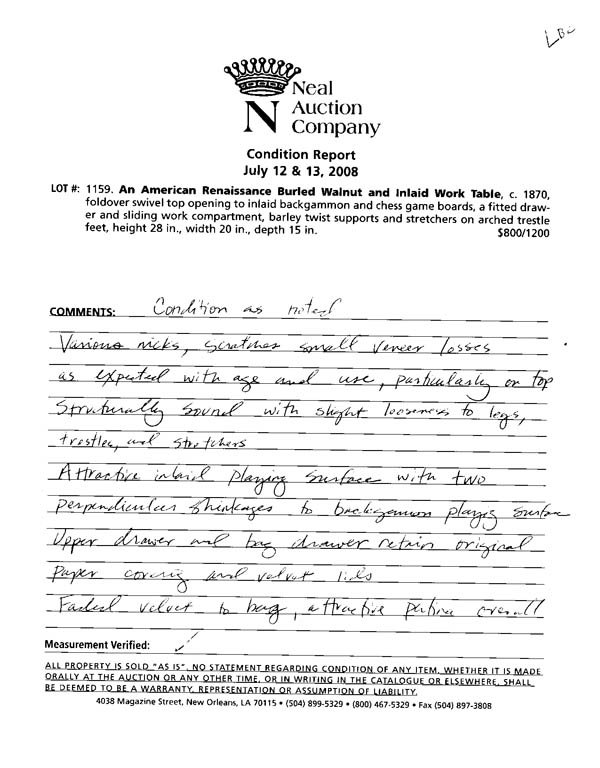 LBC
Neal
N Auction
Company
Condition Report
July 12 & 13, 2008
LOT #: 1159. An American Renaissance Burled Walnut and Inlaid Work Table, c. 1870,
foldover swivel top opening to inlaid backgammon and chess game boards, a fitted draw-
er and sliding work compartment, barley twist supports and stretchers on arched trestle
feet, height 28 in., width 20 in., depth 15 in. $800/1200
COMMENTS: Condition as noted
Various nicks, scratches small veneer losses
as expected with age and use, particularly on top
Struturally sound with slight looseness to legs,
trestles, and stretchers
Attractive inlaid playing surface with two
perpendicular shinkages to backgammon playing surface
Upper drawer and bag drawer retain original
paper covering and velvet lids
Faded velvet to bag, attractive patina overall
Measurement Verified: ✓
ALL PROPERTY IS SOLD "AS IS". NO STATEMENT REGARDING CONDITION OF ANY ITEM, WHETHER IT IS MADE
ORALLY AT THE AUCTION OR ANY OTHER TIME, OR IN WRITING IN THE CATALOGUE OR ELSEWHERE, SHALL
BE DEEMED TO BE A WARRANTY, REPRESENTATION OR ASSUMPTION OF LIABILITY.
4038 Magazine Street, New Orleans, LA 70115 • (504) 899-5329 • (800) 467-5329 • Fax (504) 897-3808